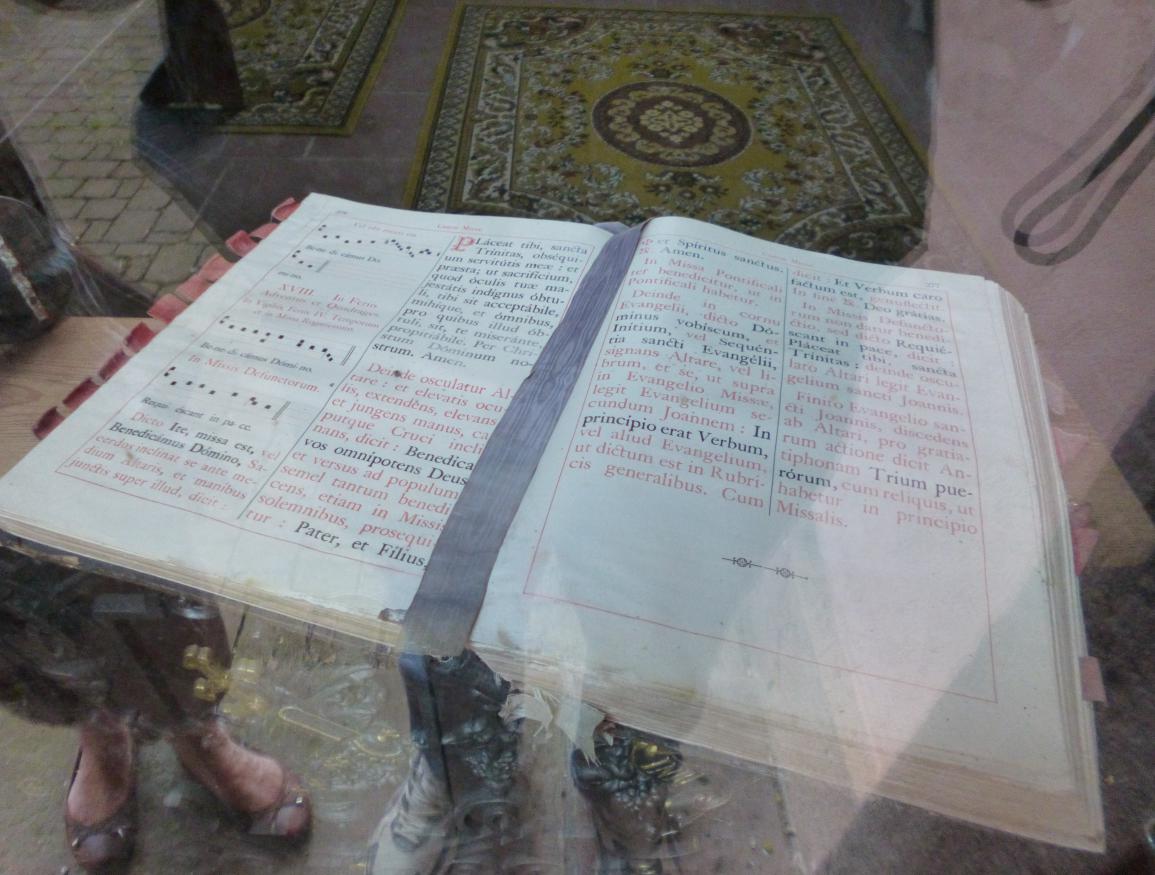 Canon Missæ
Be-ne-di-cámus Dó-
mi-no.
XVIII. In Feriis
Adventus et Quadrages.
Be-ne-di-cámus Dómi-no.
In Missis Defunctorum.
Requi-éscant in pa-ce.
Dicto Ite, missa est, vel
Benedicámus Dómino, Sa-
cerdos inclinat se ante me-
dium Altaris, et manibus
junctis super illud, dicit :
PLáceat tibi, sancta
Trínitas, obséqui-
um servitútis meæ : et
præsta; ut sacrifícium,
quod óculis tuæ ma-
jestátis indígnus óbtu-
li, tibi sit acceptábile,
mihíque, et ómnibus,
pro quibus illud ób-
tuli, sit, te miseránte,
propitiábile. Per Chri-
stum Dóminum no-
strum. Amen.
Deinde osculatur Al-
tare : et elevatis ocu-
lis, extendens, elevans
et jungens manus, ca-
putque Cruci incli-
nans, dicit : Benedica
vos omnípotens Deus
et versus ad populum
semel tantum benedi
cens, etiam in Missis
solemnibus, prosequi
tur : Pater, et Fílius,
277
✠ et Spíritus sanctus.
℟. Amen.
In Missa Pontificali
ter benedicitur, ut in
Pontificali habetur.
Deinde in cornu
Evangelii, dicto Dó-
minus vobíscum, et
Inítium, vel Sequén-
tia sancti Evangélii,
signans Altare, vel li-
brum, et se, ut supra
in Evangelio Missæ,
legit Evangelium se-
cundum Joannem : In
princípio erat Verbum,
vel aliud Evangelium,
ut dictum est in Rubri-
cis generalibus. Cum
dicit : Et Verbum caro
factum est, genuflectit.
In fine ℟. Deo grátias.
In Missis Defuncto-
rum non datur benedi-
ctio, sed dicto Requié-
scant in pace, dicit
Pláceat tibi, sancta
Trínitas : deinde oscu-
lato Altari legit Evan-
gelium sancti Joannis.
Finito Evangelio san-
cti Joannis, discedens
ab Altari, pro gratia-
rum actione dicit An-
tiphonam Trium pue-
rórum, cum reliquis, ut
habetur in principio
Missalis.